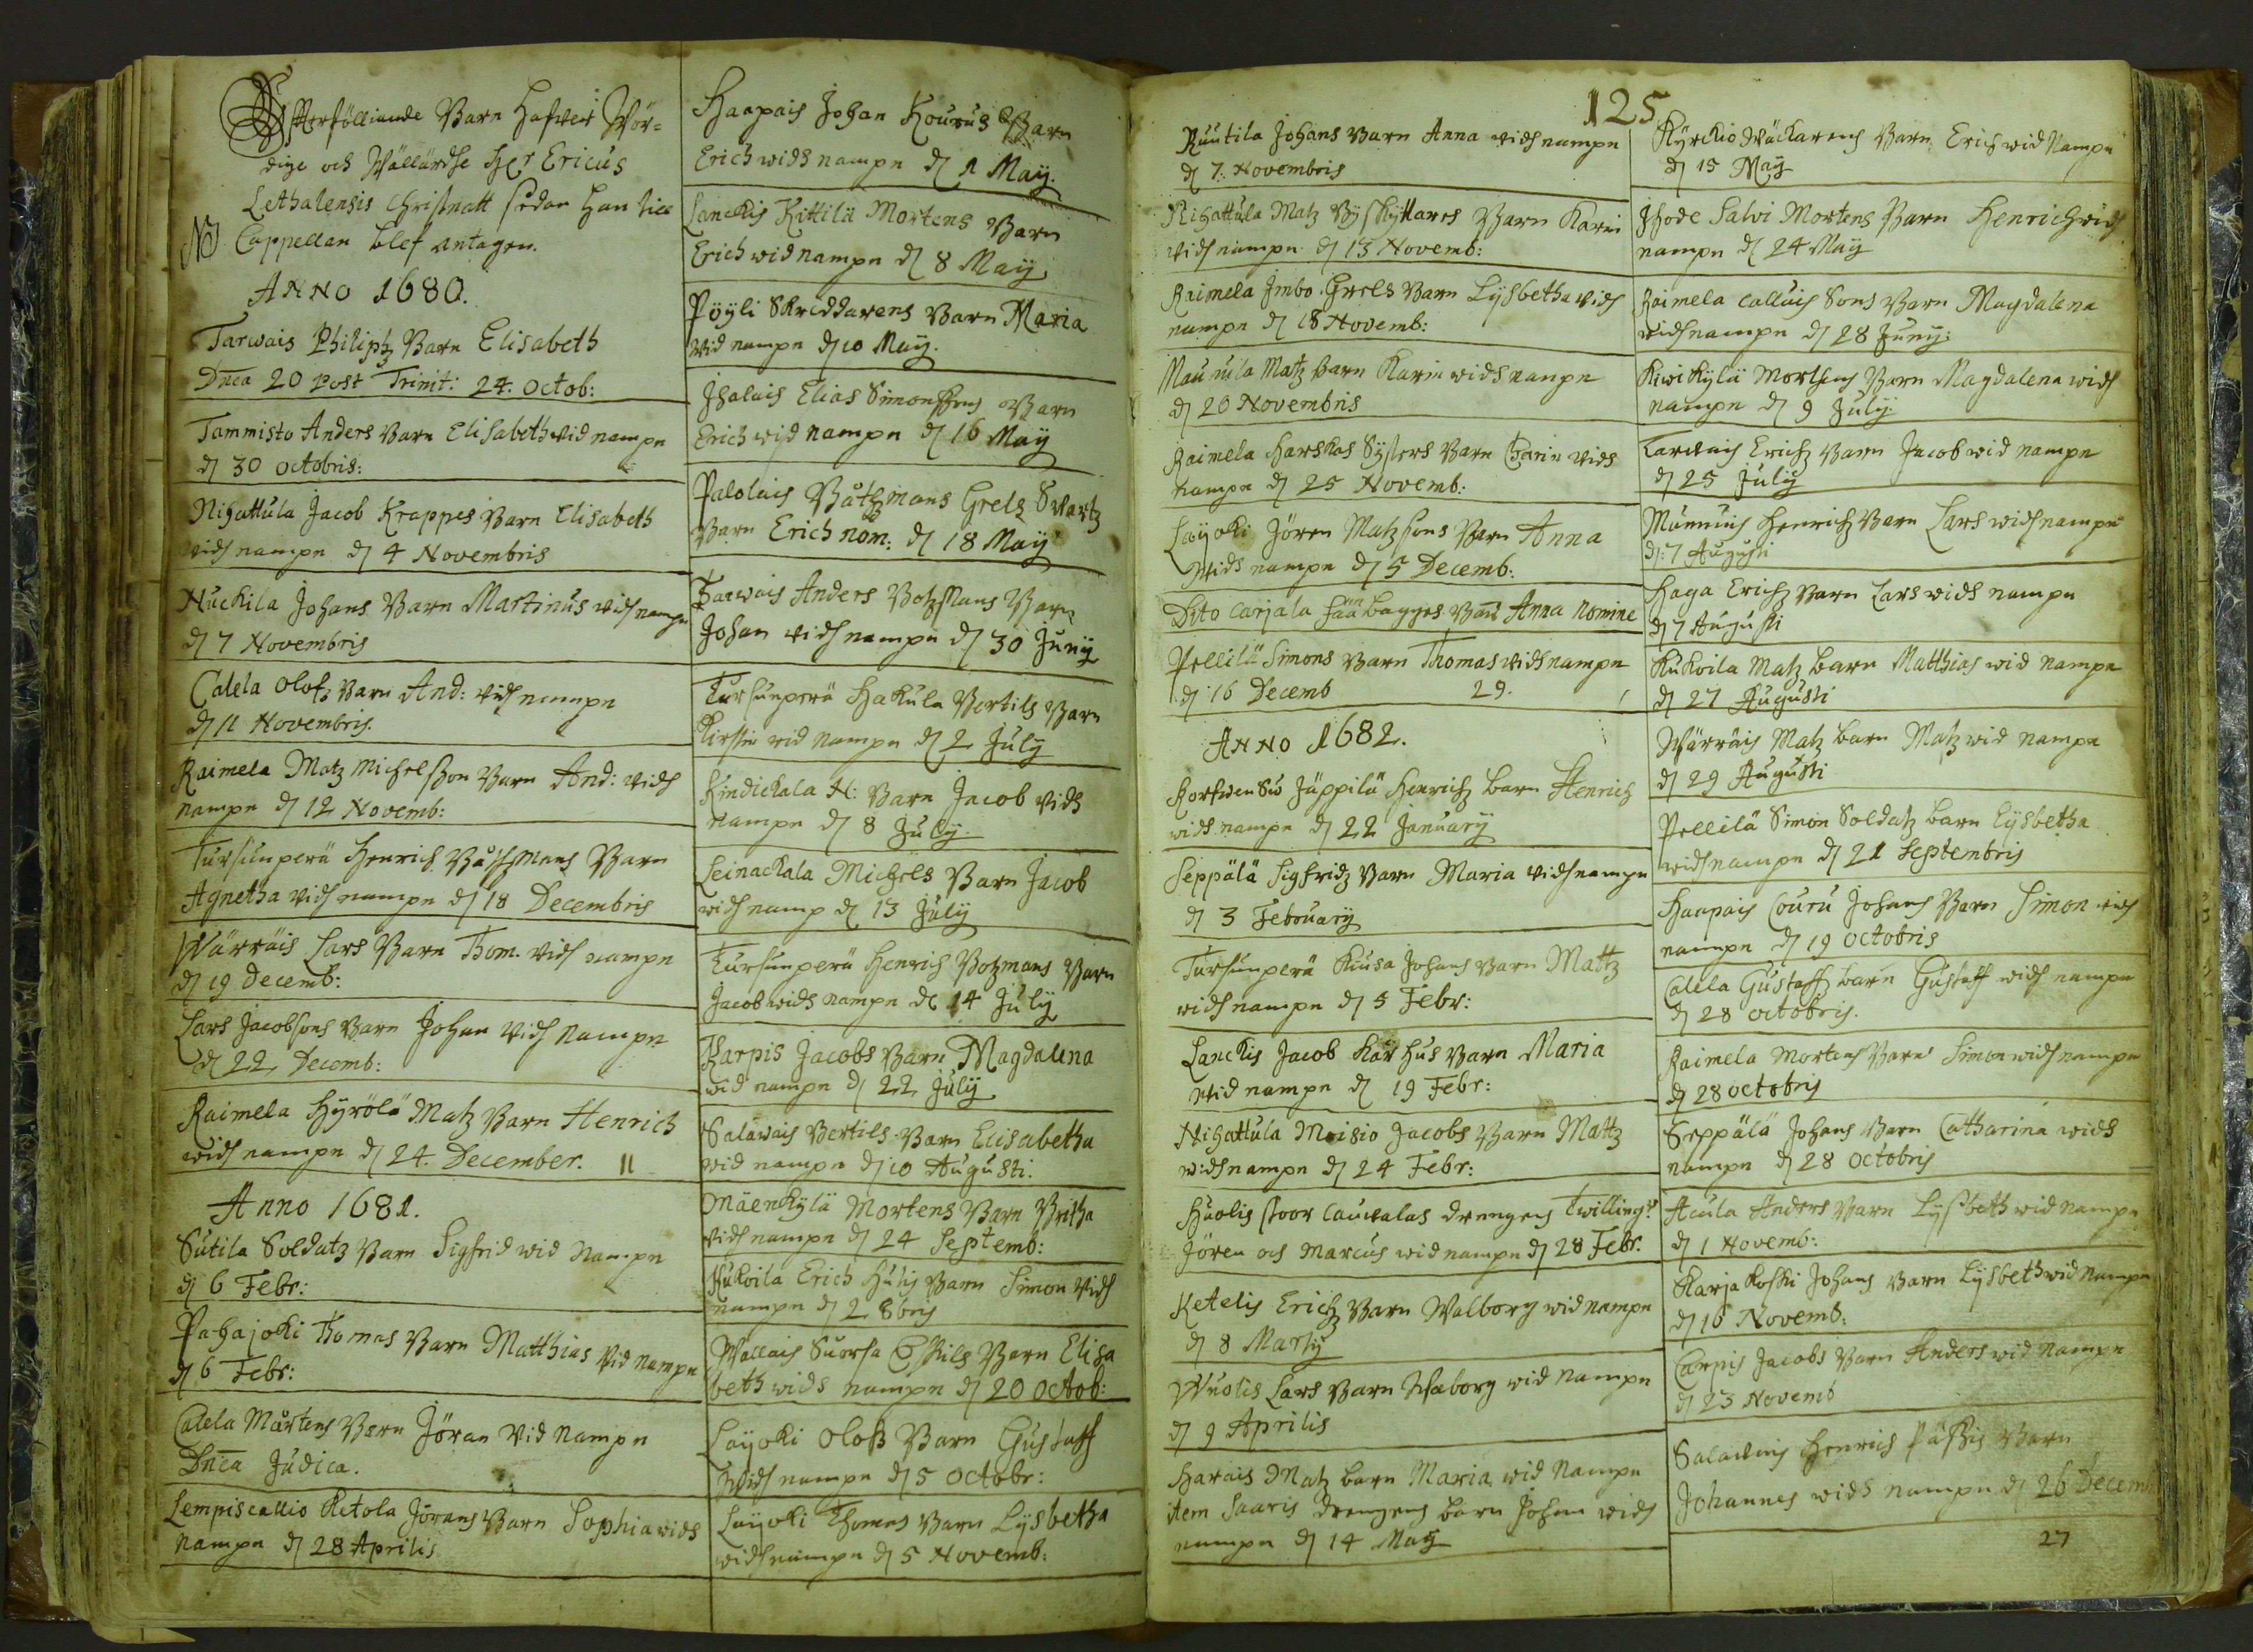 Effterfölliande Barn hafver Wör=
dige och Wällärdhe Her Ericus
Lethalensis Christnatt sedan han till
NB Cappellan blef antagen.
ANNO 1680.
Tarwais Philiptz Barn Elisabeth
Dnca 20 post Trinit: 24. Octob:
Tammisto Anders Barn Elisabeth vid nampn
d 30 octobris:
Nihattula Jacob Krappes Barn Elisabeth
vidh nampn d 4 Novembris
Nuckila Johans Barn Martinus vidh nampn
d 7 Novembris
Calela Olofz Barn And: vidh nampn
d 11 Novembris.
Raimela Matz Michelsson Barn And: vidh
nampn d 12 Novemb:
Tursunperä Henrich Båtzmans Barn
Agnetha vidh nampn d 18 Decembris
Wärräis Lars Barn Thom. vidh nampn
d 19 Decemb:
Lars Jacobsons Barn Johan vidh Nampn
d 22 Decemb:
Raimela Hyrölä Matz Barn Henrich
widh nampn d 24. December. 11
Anno 1681.
Sutila Soldatz Barn Sigfrid wid Nampn
d 6 Febr:
Pahajoki Thomas Barn Matthias vid nampn
d 6 Febr:
Calela Mårtens Barn Jöran vid Nampn
Dnca Judica.
Lempiscallio Retola Jörans Barn Sophia wids
nampn d 28 Aprilis
Haapais Johan Kourus Barn
Erich wids nampn d 1 Maÿ.
Lanckis Kittilä Mortens Barn
Erich wid nampn d 8 Maÿ
Pöÿli Skreddarens Barn Maria
wid nampn d 10 Maÿ.
Jhalais Elias Simonssons Barn
Erich wid nampn d 16 Maÿ
Palolais Båtzmans Grels Swartz
Barn Erich nom: d 18 Maÿ
Tarwais Anders Botzmans Barn
Johan vidh nampn d 30 Junÿ
Tursunperä Hakula Bertils Barn
Kirstin wid nampn d 2 Julÿ
Kindickala N: Barn Jacob vids
nampn d 8 Julÿ.
Leinackala Michels Barn Jacob
widh namp d 13 Julÿ
Tursunperä Henrich Botzmans Barn
Jacob wids nampn d 14 Julÿ
Karpis Jacobs Barn Magdalena
wid nampn d 22 Julÿ
Salawais Bertils Barn Elisabetha
wid nampn d 10 Augusti.
Mäenkÿlä Mortens Barn Britha
vidh nampn d 24 Septemb:
Kukoila Erich Huhis Barn Simon vidh
nampn d 2 8bris
Wallais Suorsa Eskils Barn Elisa
beth wids nampn d 20 Octob:
Layoki Olofz Barn Gustaff
widh nampn d 5 Octobr:
Layoki Thomas Barn Lysbetha
widh nampn d 5 Novemb:
125
Ruutila Johans Barn Anna vidh nampn
d 7 Novembris
Nihattula Matz Byskÿttares Barn Karin
vidh nampn d 13 Novemb:
Raimela Jmbo Grels Barn Lÿsbetha vidh
nampn d 18 Novemb:
Maunula Matz barn Karin wids nampn
d 20 Novembris
Raimela Harskas Sÿsters Barn Carin vids
nampn d 25 Novemb:
Layoki Jören Matzsons Barn Anna
wids nampn d 5 Decemb:
Dito Carjala Barn Anna Nomine
Pellilä Simons Barn Thomas vidh nampn
d 16 Decemb 29.
ANNO 1682.
Korfwensu Jäppilä Henrichz barn Henrich
wids nampn d 22 Januarÿ
Seppälä Sigfridz Barn Maria vidh nampn
d 3 Februarÿ
Tursunperä Kiusa Johans Barn Mattz
widh nampn d 5 Febr:
Lanckis Jacob Karhus Barn Maria
wid nampn d 19 Febr:
Nihattula Moisio Jacobs Barn Mattz
widh nampn d 24 Febr:
Huolis stoor Lauralas drengens Twillingr
Jören och Marcus wid nampn d 28 Febr.
Ketelis Erichz Barn Walborg wid nampn
d 8 Martÿ
Wuolis Lars Barn Waborg wid nampn
d 9 Aprilis
Harais Matz barn Maria wid Nampn
item Saaris drengens barn Johan widh
nampn d 14 Maÿ
Kÿrckio Wäckarens Barn Erich wid Nampn
d 15 Maÿ
Jhode Salvi Mortens Barn Henrich widh
nampn d 24 Maÿ
Raimela Calluis Sons Barn Magdalena
widh nampn d 28 Junÿ:
Kiwikÿlä Mortens Barn Magdalena widh
nampn d 9 Julÿ
Tarwais Erichz Barn Jacob wid nampn
d 25 Julÿ
Munnuis Henrichz Barn Lars widh nampn
d: 7 Augusti
Haga Erichz Barn Lars wids nampn
d 7 Augusti
Kukoila Matz Barn Matthias wid nampn
d 27 Augusti
Wärräis Matz barn Matz wid nampn
d 29 Augusti
Pellilä Simon Soldatz barn Lÿsbetha
widh nampn d 21 Septembris
Haapais Couru Johans Barn Simon widh
nampn d 19 Octobris
Calela Gustaffz barn Gustaff widh nampn
d 28 octobris.
Raimela Mortens Barn Simon widh nampn
d 28 octobris
Seppälä Johans Barn Catharina wids
nampn d 28 Octobris
Acula Anders Barn Lÿsbeth wid nampn
d 1 Novemb:
Karjakoski Johans Barn Lÿsbeth wid nampn
d 16 Novemb:
Carpis Jacobs Barn Anders wid nampn
d 23 Novemb
Salawais Henrich Pässis Barn
Johannes wids nampn d 26 Decemb
27